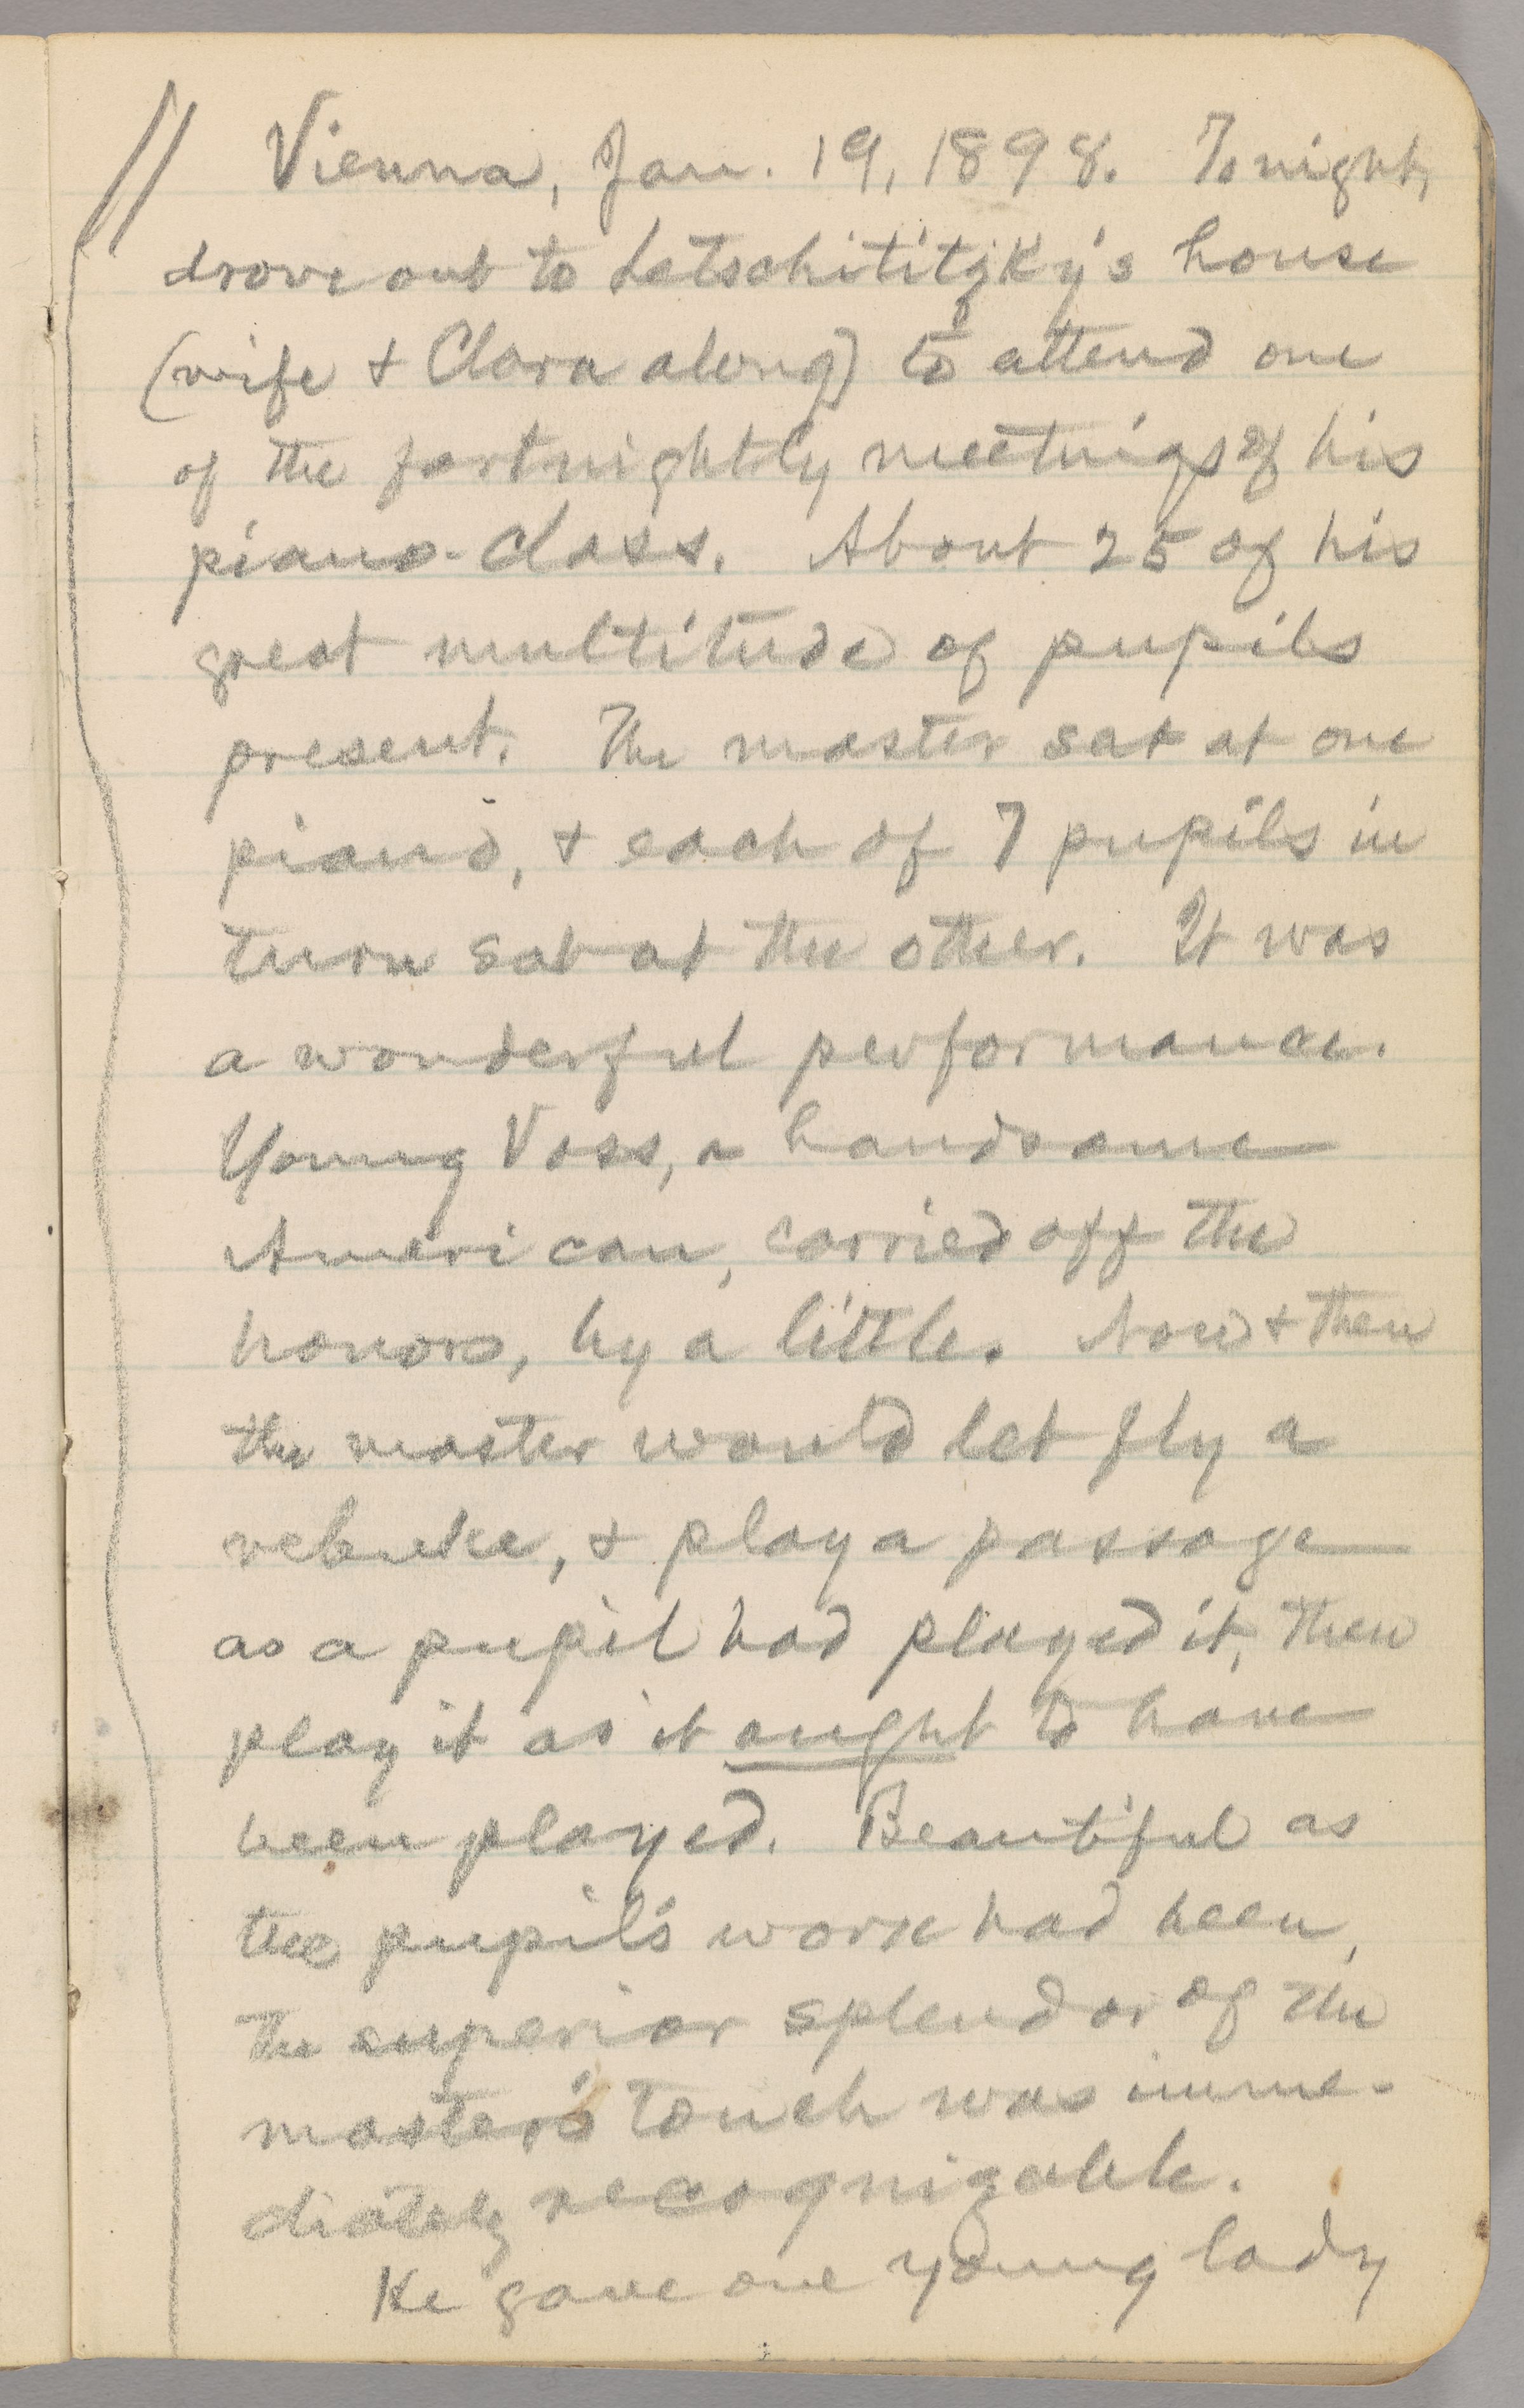 Vienna, Jan. 19, 1898. Tonight,
drove out to Letschititzky's house
(wife + Clara along) to attend one
of the fortnightly meetings of his
piano-class. About 25 of his
great multitude of pupils
present. The master sat at one
piano, + each of 7 pupils in
turn sat at the other. It was
a wonderful performance.
Young Voss, a handsome
American, carried off the
honors, by a little. Now + then
the master would let fly a
rebuke, + play a passage
as a pupil had played it, then
play it as it ought to have
been played. Beautiful as
the pupil's work had been,
the superior splendor of the
master's touch was imme-
diately recognizable.
He gave one young lady